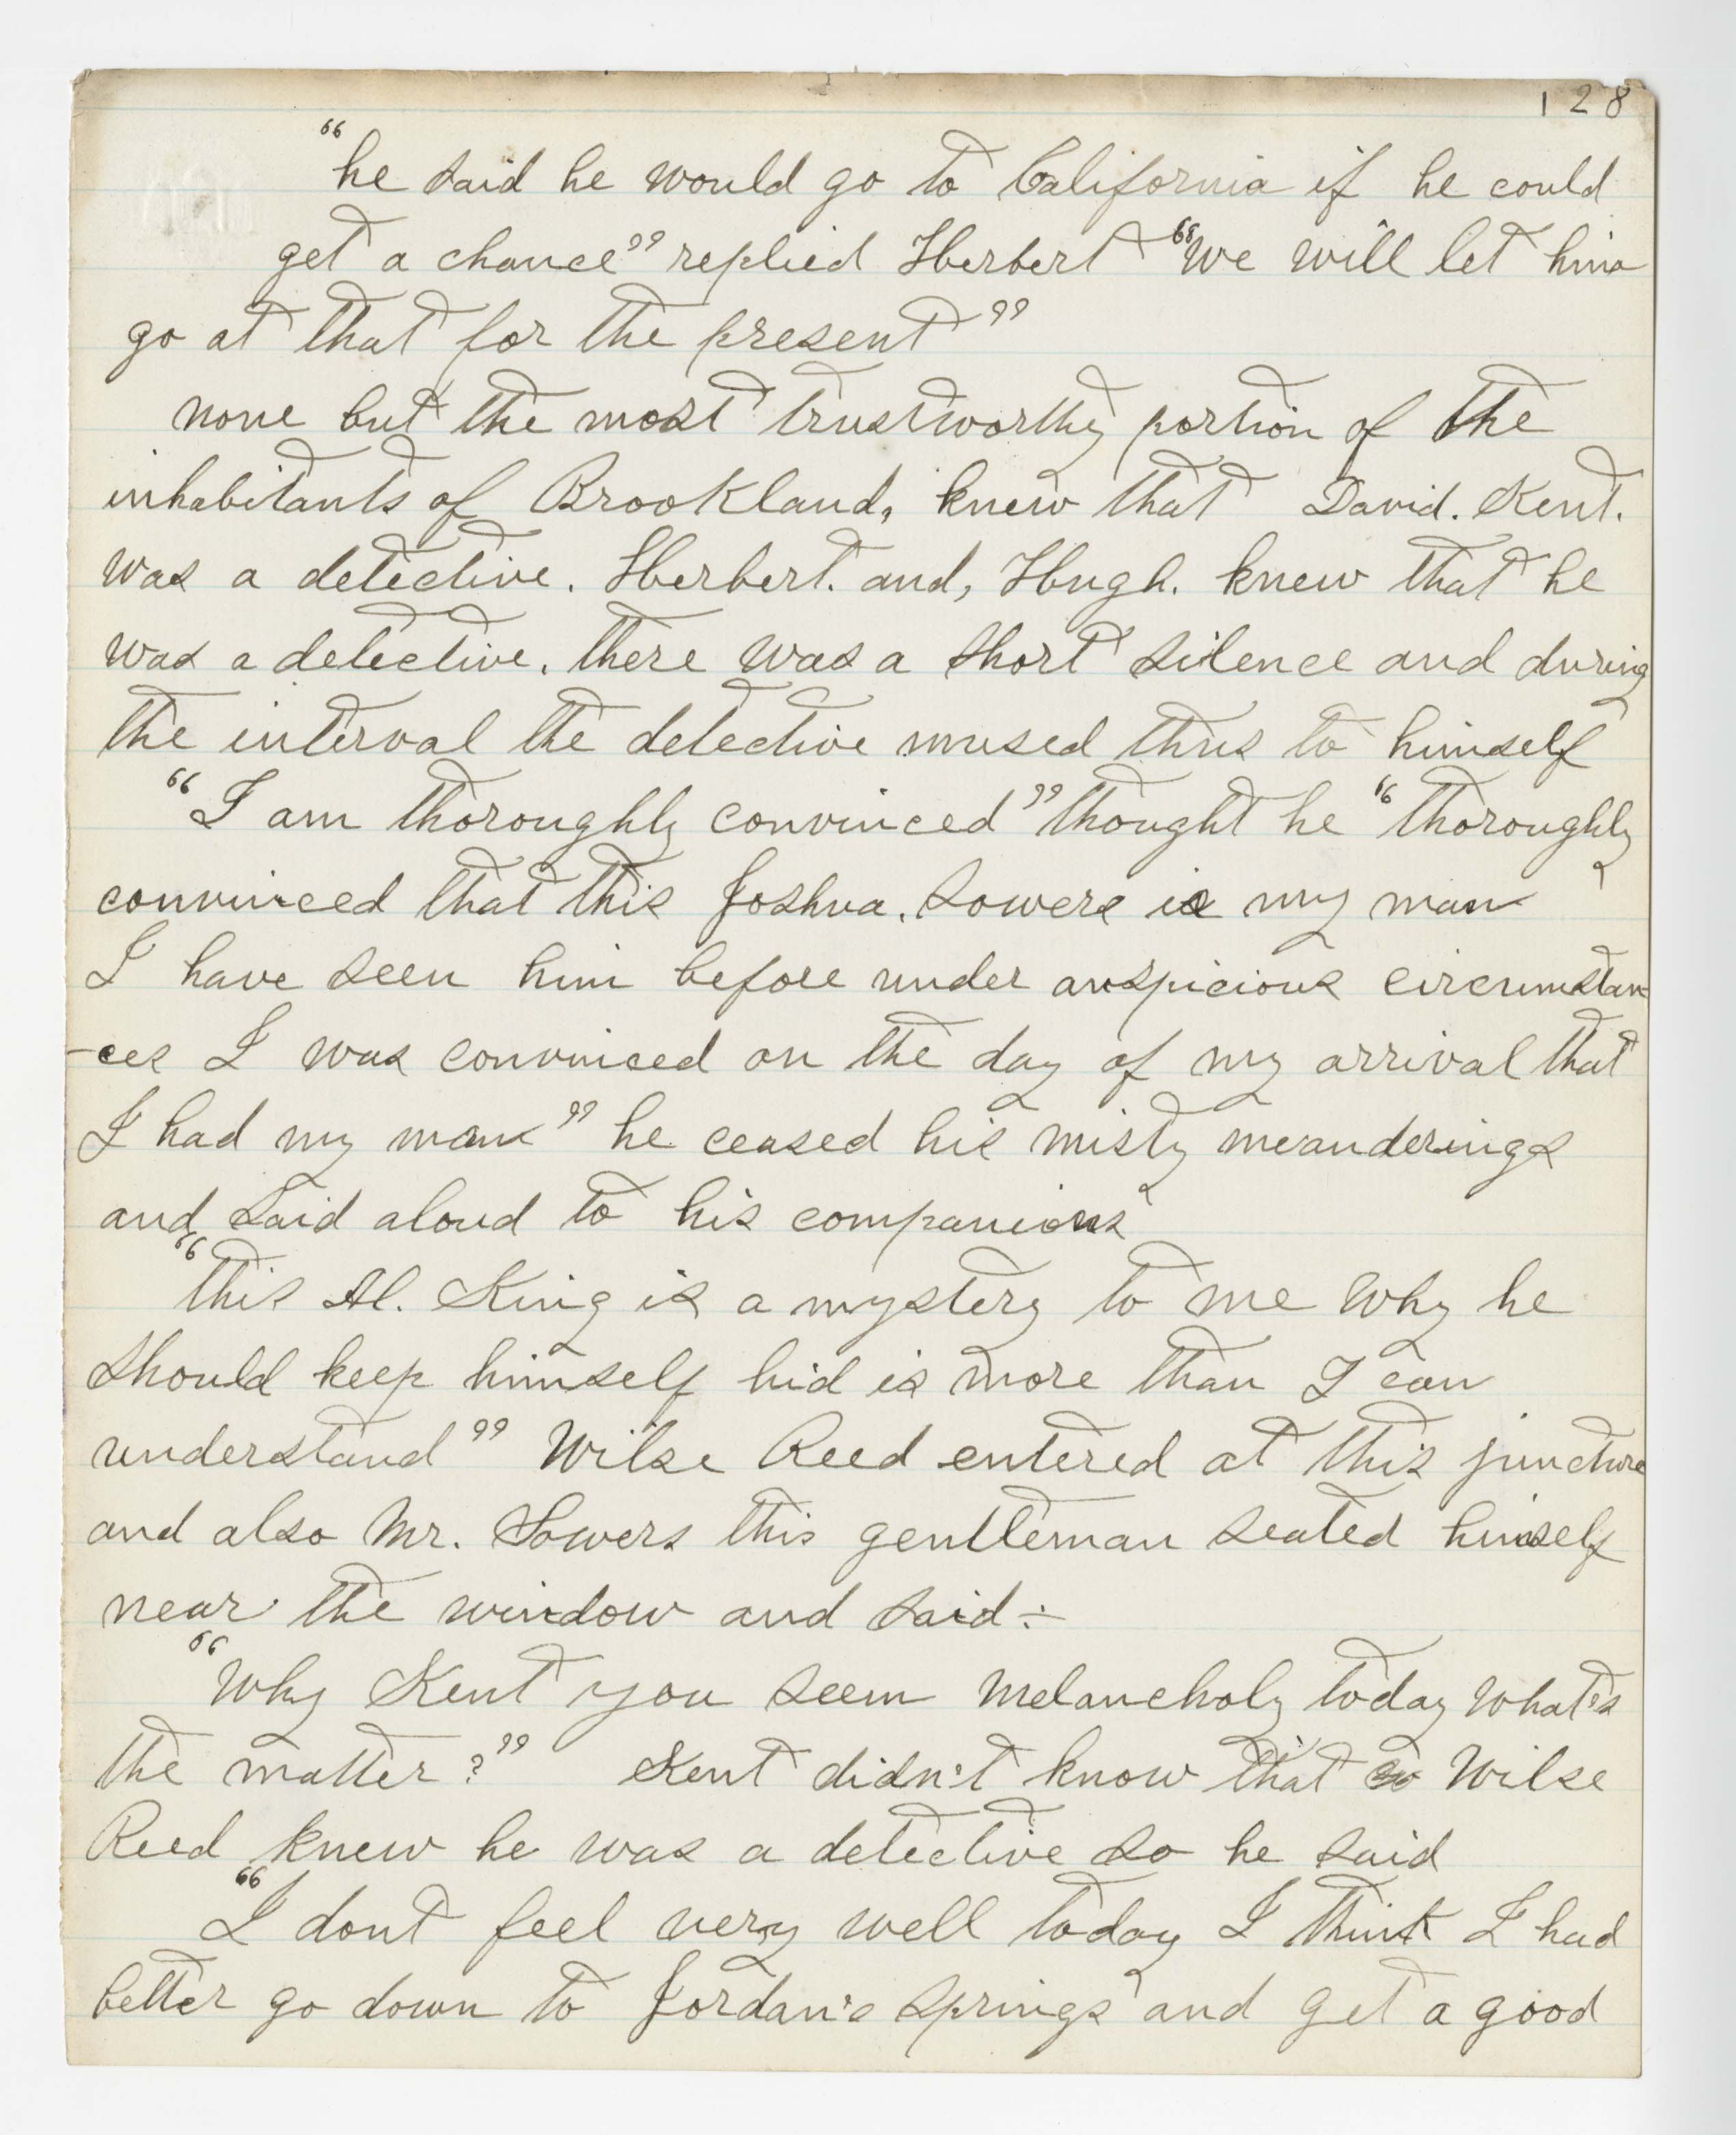 128
"he said he would go to California if he could
get a chance" replied Herbert "We will let him
go at that for the present"
none but the most trustworthy portion of the
inhabitants of Brookland, knew that David. Kent.
was a detective. Herbert. and, Hugh. knew that he
was a detective. there was a short silence and during
the interval the detective mused thus to himself
"I am thoroughly convinced" thought he "thoroughly
convinced that this Joshua. Sowers is my man
I have seen him before under auspicious circumstan
-ces I was convinced on the day of my arrival that
I had my man" he ceased his misty meanderings
and said aloud to his companions
"this Al. King is a mystery to me why he
should keep himself hid is more than I can
understand" Wilse Reed entered at this juncture
and also Mr. Sowers this gentleman seated himself
near the window and said:-
"Why Kent you seem melancholy today what's
the matter?" Kent didn't know that Wilse
Reed knew he was a detective so he said
"I dont feel very well today I think I had
better go down to Jordan's Springs and get a good